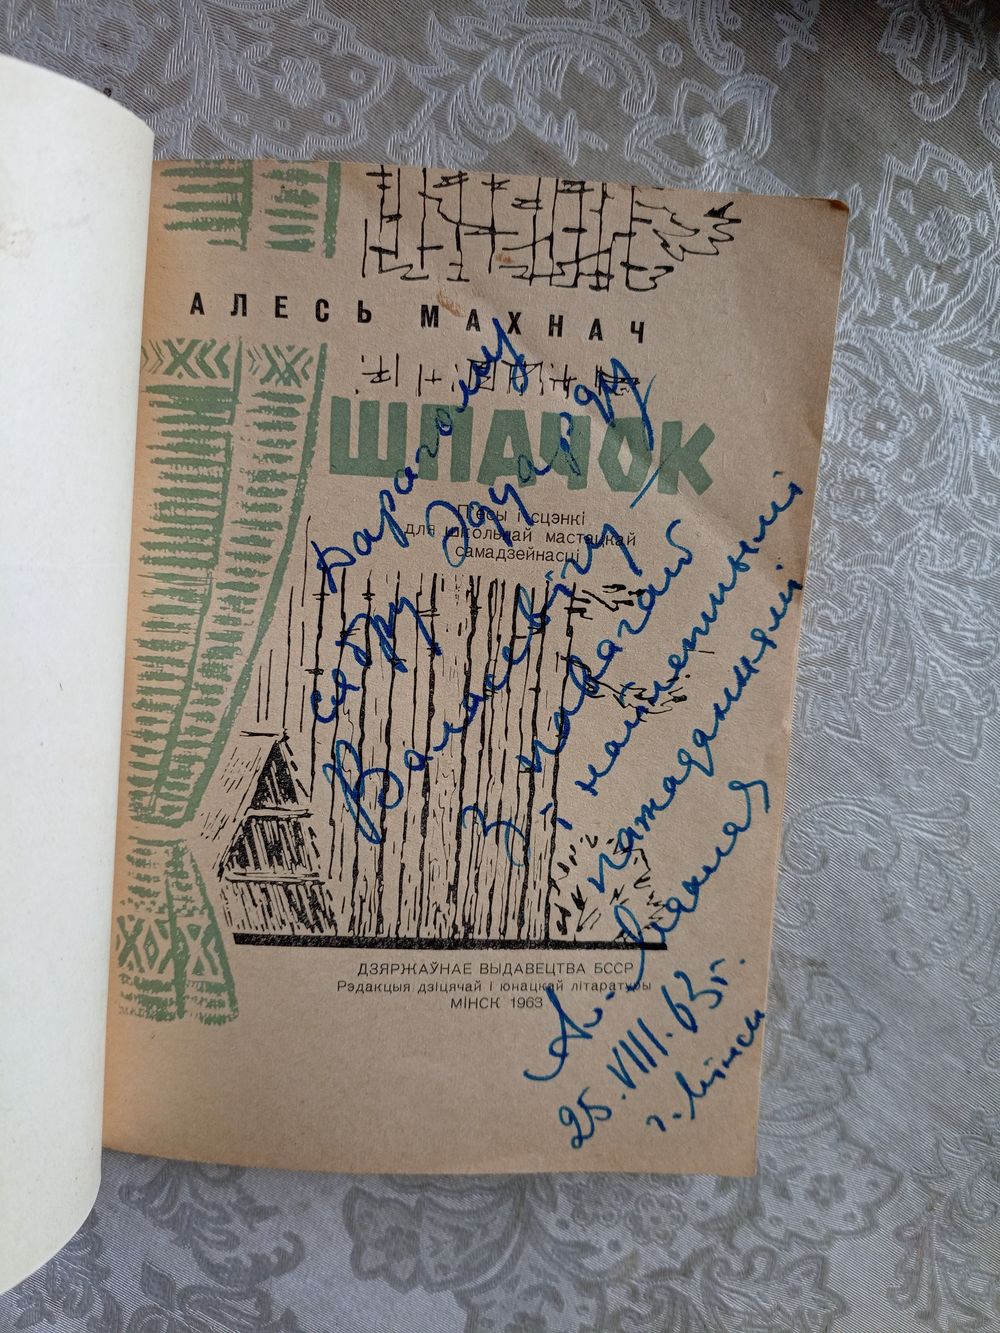 АЛЕСЬ МАХНАЧ
ШПАЧОК
П'есы і сцэнкі
для школьнай мастацкай
самадзейнасці
ДЗЯРЖАЎНАЕ ВЫДАВЕЦТВА БССР
Рэдакцыя дзіцячай і юнацкай літаратуры
МІНСК 1963
Дарагому
сябру Эдуарду
Валасевічу —
З павагай
і найлепшымі
пажаданнямі
25.VIII.63г.
г. Мінск